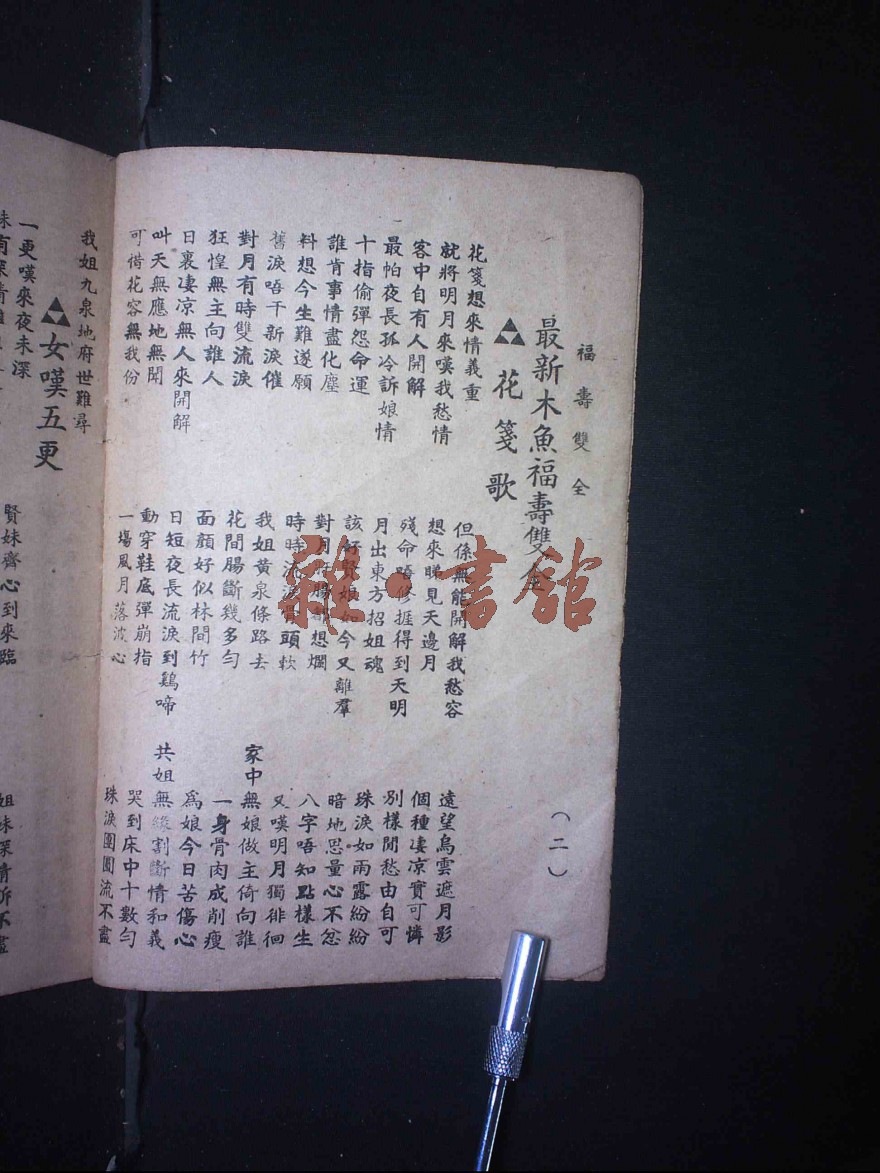 福壽雙全
（二）
最新木魚福壽雙全
花箋歌
花箋想來情義重
但係無能開解我愁容
遠望烏雲遮月影
就將明月來嘆我愁情
想來睇見天邊月
個種凄凉實可憐
客中自有人開解
殘命唔修捱得到天明
別樣閒愁由自可
最怕夜長孤冷訴娘情
月出東方招姐魂
珠淚如雨露紛紛
十指偷彈怨命運
該好賢娘如今又離羣
暗地思量心不忿
誰肯事情盡化塵
對月腸想爛
八字唔知點樣生
料想今生難遂願
時時流淚骨頭軟
又嘆明月獨徘徊
舊淚唔干新淚催
我姐黄泉條路去
家中無娘做主倚向誰
對月有時雙流淚
花間腸斷幾多勻
一身骨肉成削瘦
狂惶無主向誰人
面顔好似林間竹
爲娘今日苦傷心
日裏凄凉無人來開解
日短夜長流淚到鷄啼
共姐無緣割斷情和義
叫天無應地無聞
動穿鞋底彈崩指
哭到床中十數勻
可惜花容無我份
一塲風月落波心
珠淚團圓流不盡
我姐九泉地府世難尋
女嘆五更
一更嘆來夜未深
賢妹齊心到來臨
姐妹深情訴不盡
雜·書館